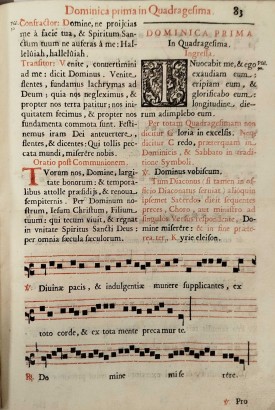 Dominica prima in Quadragesima. 83
Confractor: Domine, ne projicias
me à facie tua, & Spiritum San-
ctum tuum ne auferas à me: Hal-
lelúiah, hallelúiah.
Transitor: Venite, convertimini
ad me: dicit Dominus. Venite
flentes, fundamus lachrymas ad
Deum: quia nos negleximus, &
propter nos terra patitur; nos ini-
quitatem fecimus, & propter nos
fundamenta commota sunt. Festi-
nemus iram Dei antevertere,
flentes, & dicentes; Qui tollis pec-
cata mundi, miserére nobis.
Oratio post Communionem.
Tuorum nos, Domine, largi-
tate bonorum: & tempora-
libus attolle præsidijs, & renova
sempiternis. Per Dominum no-
strum, Iesum Christum, Filium
tuum: qui tecum vivit, & regnat
in vnitate Spiritus Sancti Deus:
per omnia sæcula sæculorum.
DOMINICA PRIMA
In Quadragesima.
Ingressa.
INuocabit me, & ego
exaudiam eum:
eripiam eum, &
glorificabo eum:
longitudine die-
rum adimplebo eum.
Per totam Quadragesimam non
dicitur Gloria in excelsis. Non
dicitur Credo, præterquam in
Dominicis, & Sabbato in traditio-
ne Symboli.
℣. Dominus vobiscum.
Tum Diaconus
mine miserére:
rea ter K. yrie eleison.
℣. Diuinæ pacis, & indulgentiæ munere supplicantes, ex
toto corde, & ex tota mente precamur te.
℟. Do mine mise rére.
℣. Pro